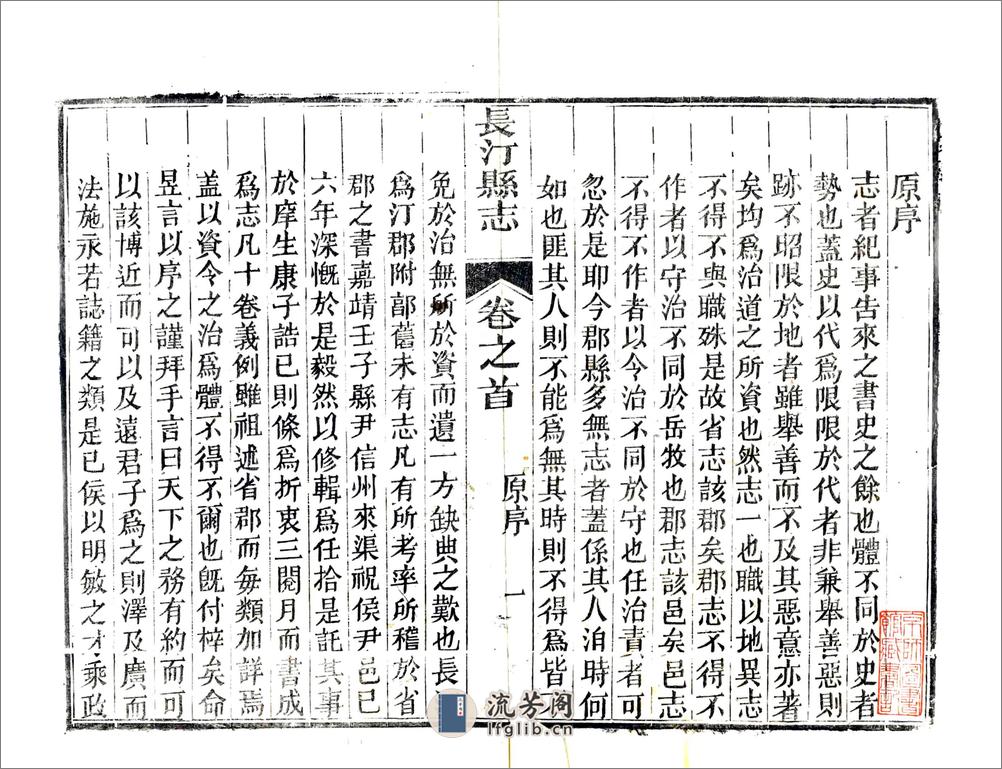 原序
志者紀事告來之書史之餘也體不同於史者
勢也蓋史以代爲限限於代者非兼舉善惡則
跡不昭限於地者雖舉善而不及其惡意亦著
矣均爲治道之所資也然志一也職以地異志
不得不與職殊是故省志該郡矣郡志不得不
作者以守治不同於岳牧也郡志該邑矣邑志
不得不作者以令治不同於守也任治責者可
忽於是耶今郡縣多無志者蓋係其人洎時何
如也匪其人則不能爲無其時則不得爲皆
長汀縣志
卷之首
原序
一
免於治無所於資而遺一方缺典之歎也長
爲汀郡附郭舊未有志凡有所考率所稽於省
郡之書嘉靖壬子縣尹信州來渠祝侯尹邑已
六年深慨於是毅然以修輯爲任拾是託其事
於庠生康子誥已則條爲折衷三閱月而書成
爲志凡十卷義例雖祖述省郡而每類加詳焉
蓋以資令之治爲體不得不爾也既付梓矣命
昱言以序之謹拜手言曰天下之務有約而可
以該博近而可以及遠君子爲之則澤及廣而
法施永若誌籍之類是已侯以明敏之才乘政
流芳阁
lfglib.cn